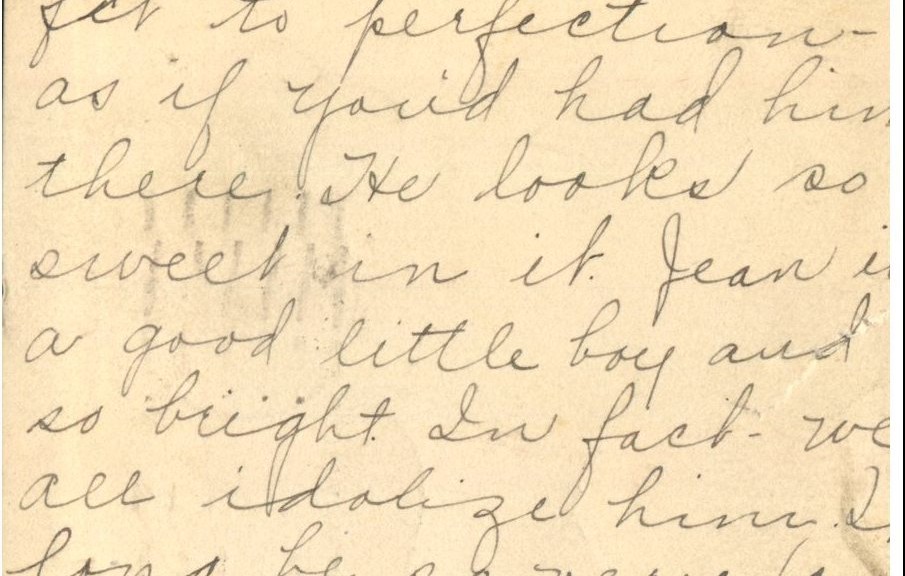 fit to perfection-
as if you'd had him
there. He looks so
sweet in it. Jean is
a good little boy and
so bright. In fact- we
all idolize him. I